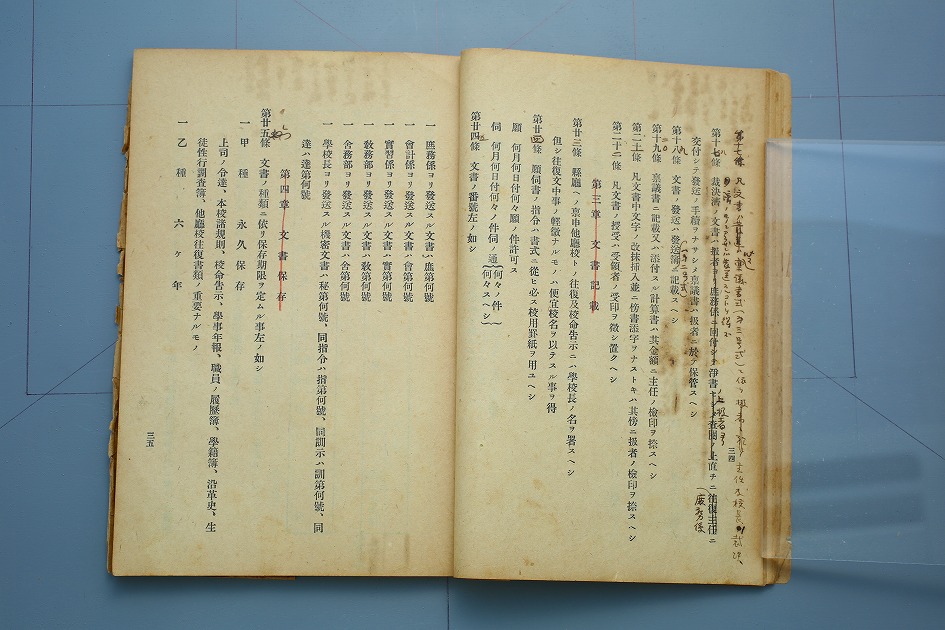 第十七條 凡文書ハ
第十七條 裁決濟ノ文書ハ扱者ヨリ庶務係ニ回付シ淨書セシメ査閱ノ上直チニ往復主任ニ
交付シテ發送ノ手續ヲナサシメ稟議書ハ扱者ニ於テ保管スヘシ
(庶務係
三四
第十八條 文書ノ發送ハ發送簿ニ記載スヘシ
第十九條 稟議書ニ記載又ハ添付スル計算書ハ其金額ニ主任ノ檢印ヲ捺スヘシ
第二十條 凡文書中文字ノ改抹挿入並ニ傍書添字ヲナストキハ其傍ニ扱者ノ檢印ヲ捺スヘシ
第二十二條 凡文書ノ授受ハ受領者ノ受印ヲ徵シ置クヘシ
第三章 文書記載
第廿三條 縣廳ヘノ稟申他廳校トノ往復及校命告示ニハ學校長ノ名ヲ署スヘシ
但シ往復文中事ノ輕微ナルモノハ便宜校名ヲ以テスル事ヲ得
第廿四條 願伺書ノ指令ハ書式ニ從ヒ必ス校用罫紙ヲ用ユヘシ
願 何月何日付何々願ノ件許可ス
伺 何月何日付何々ノ件伺ノ通(何々ノ件 何々スヘシ)
第廿四條 文書ノ番號左ノ如シ
一 庶務係ヨリ發送スル文書ハ庶第何號
一 會計係ヨリ發送スル文書ハ會第何號
一 實習係ヨリ發送スル文書ハ實第何號
一 敎務部ヨリ發送スル文書ハ敎第何號
一 舍務部ヨリ發送スル文書ハ舍第何號
一 學校長ヨリ發送スル機密文書ハ秘第何號、同指令ハ指第何號、同訓示ハ訓第何號、同
達ハ達第何號
第四章 文書保存
第廿五條 文書ノ種類ニ依リ保存期限ヲ定ムル事左ノ如シ
一 甲種 永久保存
上司ノ令達、本校諸規則、校命告示、學事年報、職員ノ履歷簿、學籍簿、沿革史、生
徒性行調査簿、他廳校往復書類ノ重要ナルモノ
一 乙種 六ヶ年
三五